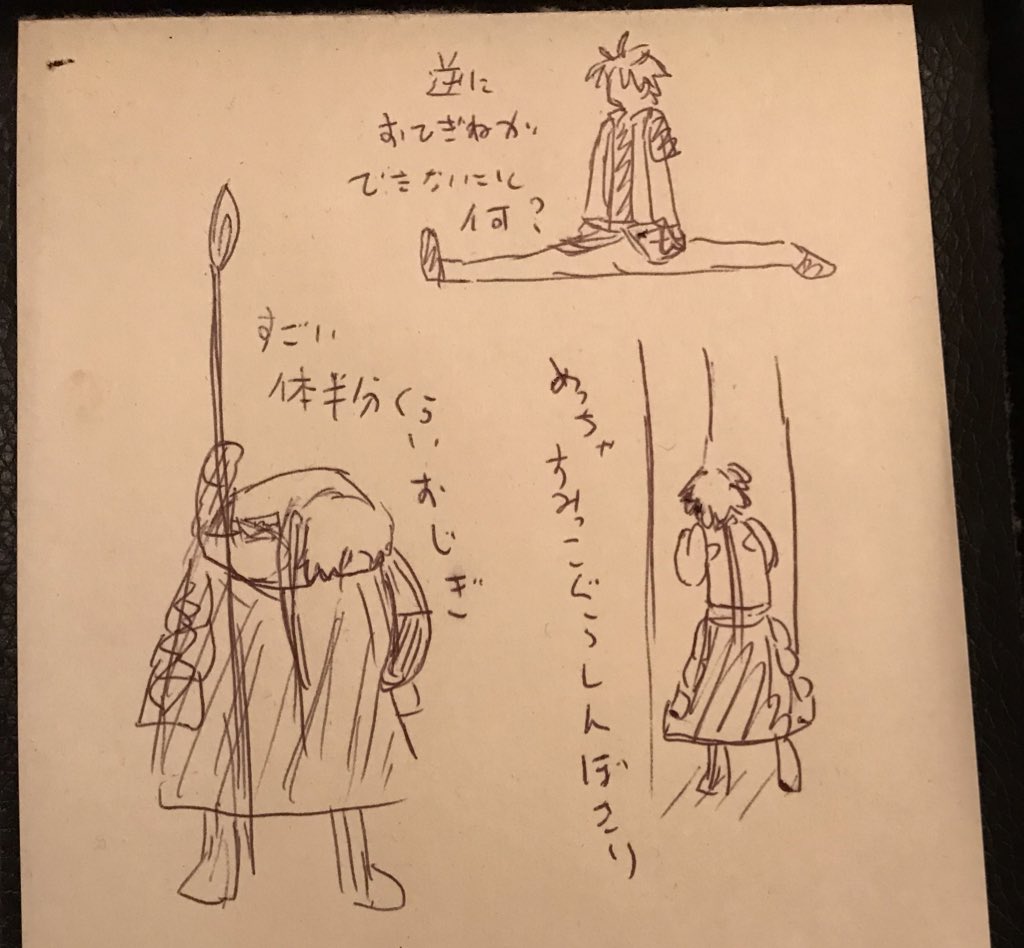 逆に
おてぎねが
できないこと
何?
すごい
体半分くらいおじぎ
めっちゃすみっこぐらしんぼさり